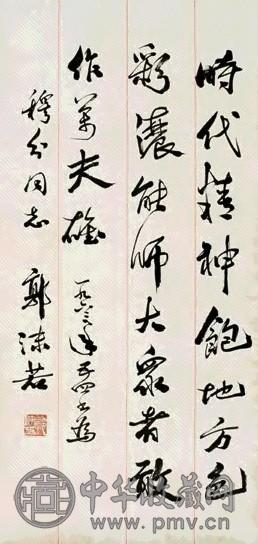 時代精神飽地方色
彩濃能師大眾者敢
作萬夫雄 一九六三年五四書為
穆分同志 郭沫若
中华收藏网
www.pmv.cn